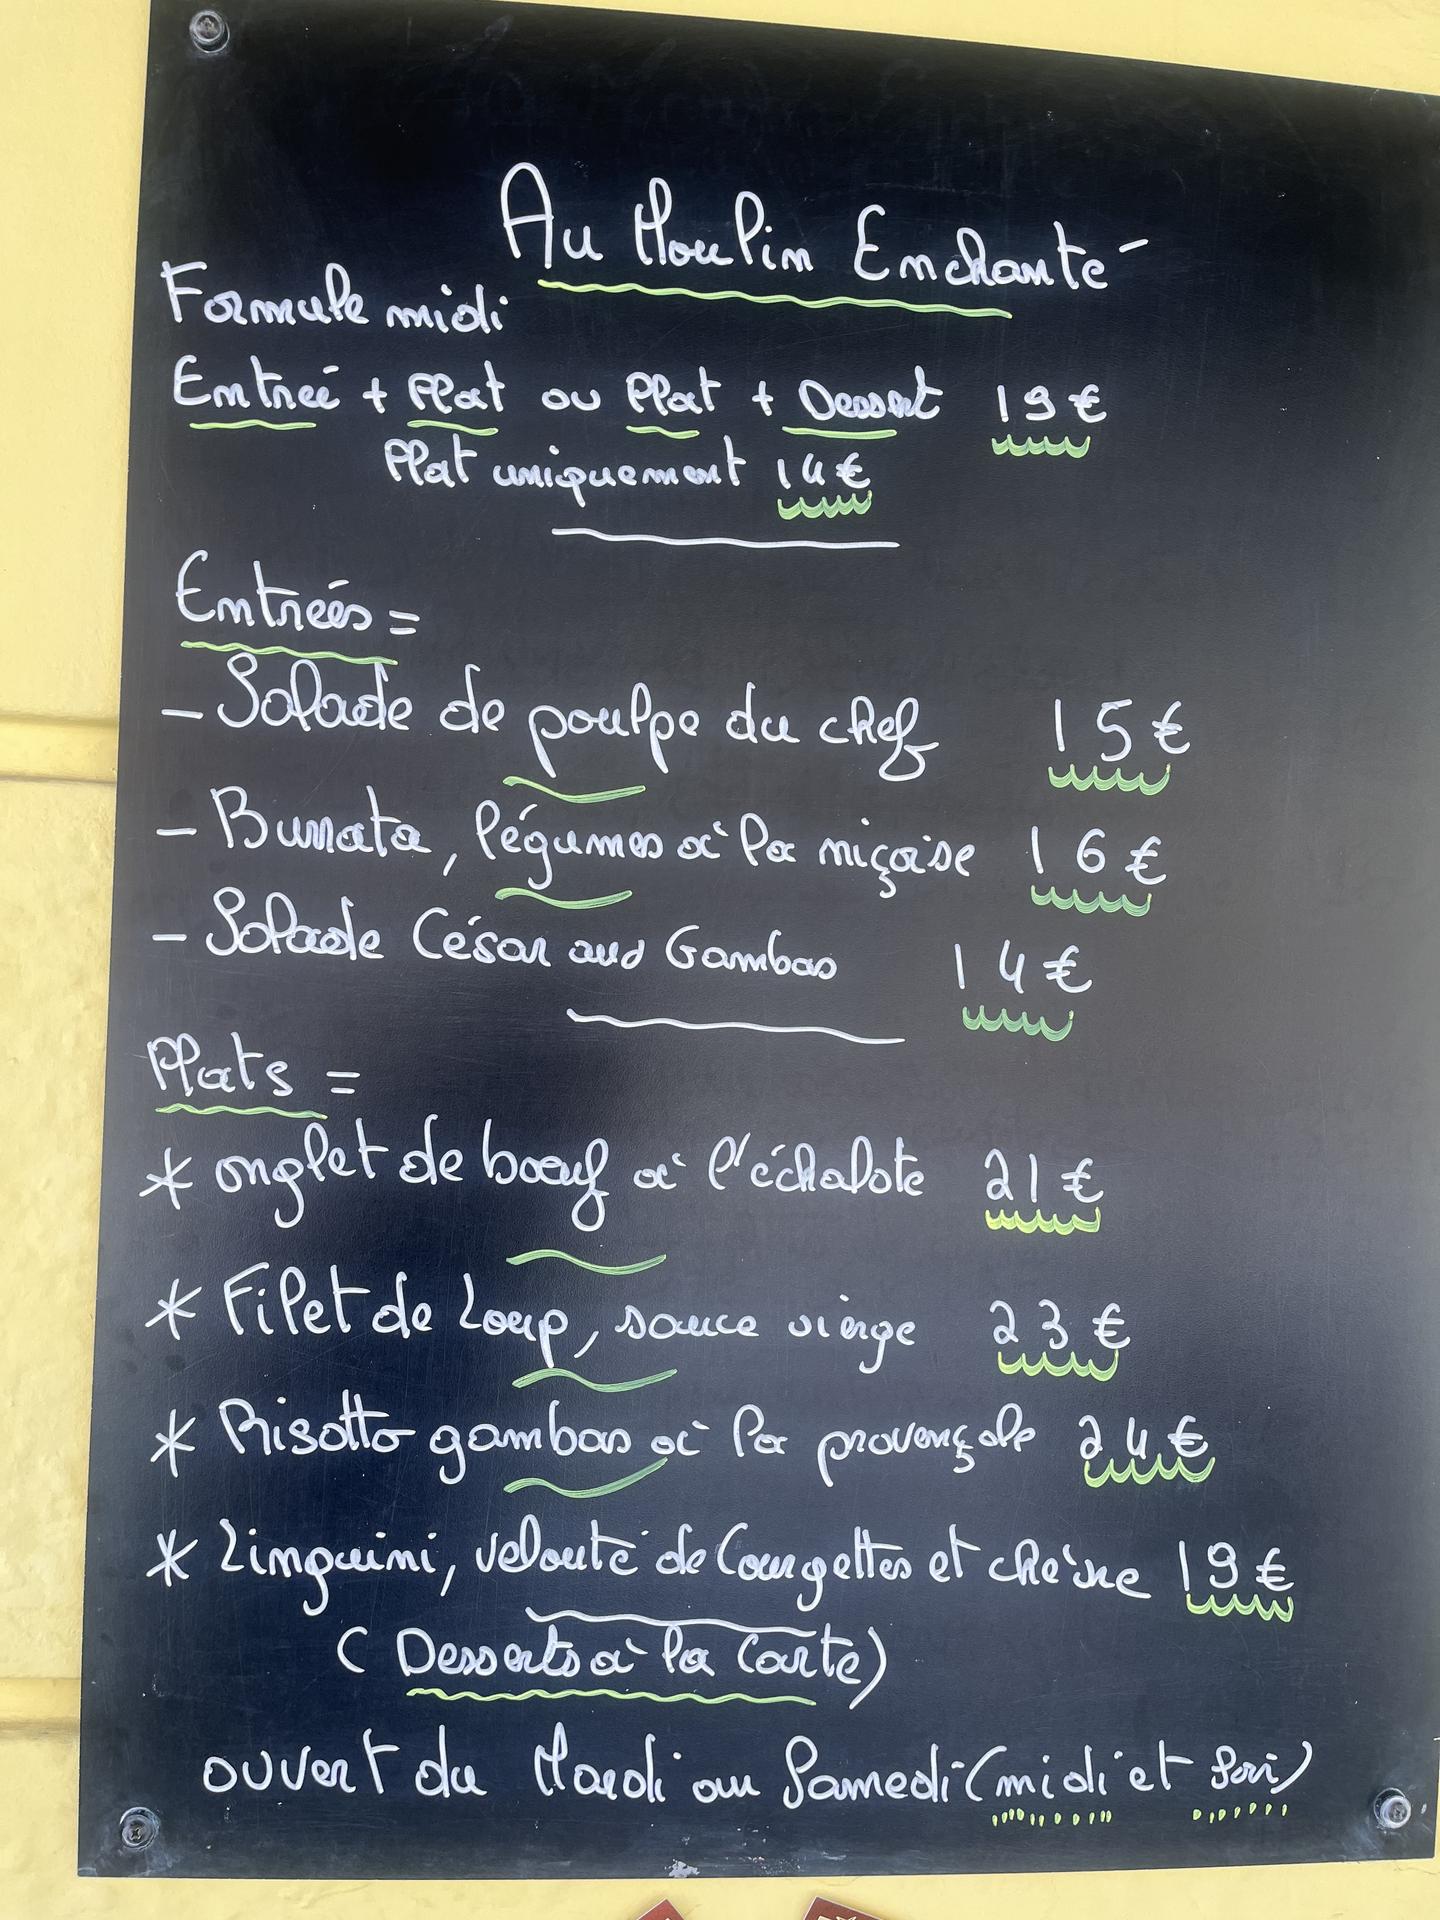 Au Moulin Enchanté
Formule midi
Entrée + Plat ou Plat + Dessert 19€
Plat uniquement 14€
Entrées =
- Salade de poulpe du chef 15€
- Burrata, légumes à la niçoise 16€
- Salade César aux Gambas 14€
Plats =
* onglet de bœuf à l'échalote 21€
* Filet de Loup, sauce vierge 23€
* Risotto gambas à la provençale 24€
* Linguini, velouté de Courgettes et chèvre 19€
(Desserts à la Carte)
ouvert du Mardi au Samedi (midi et soir)